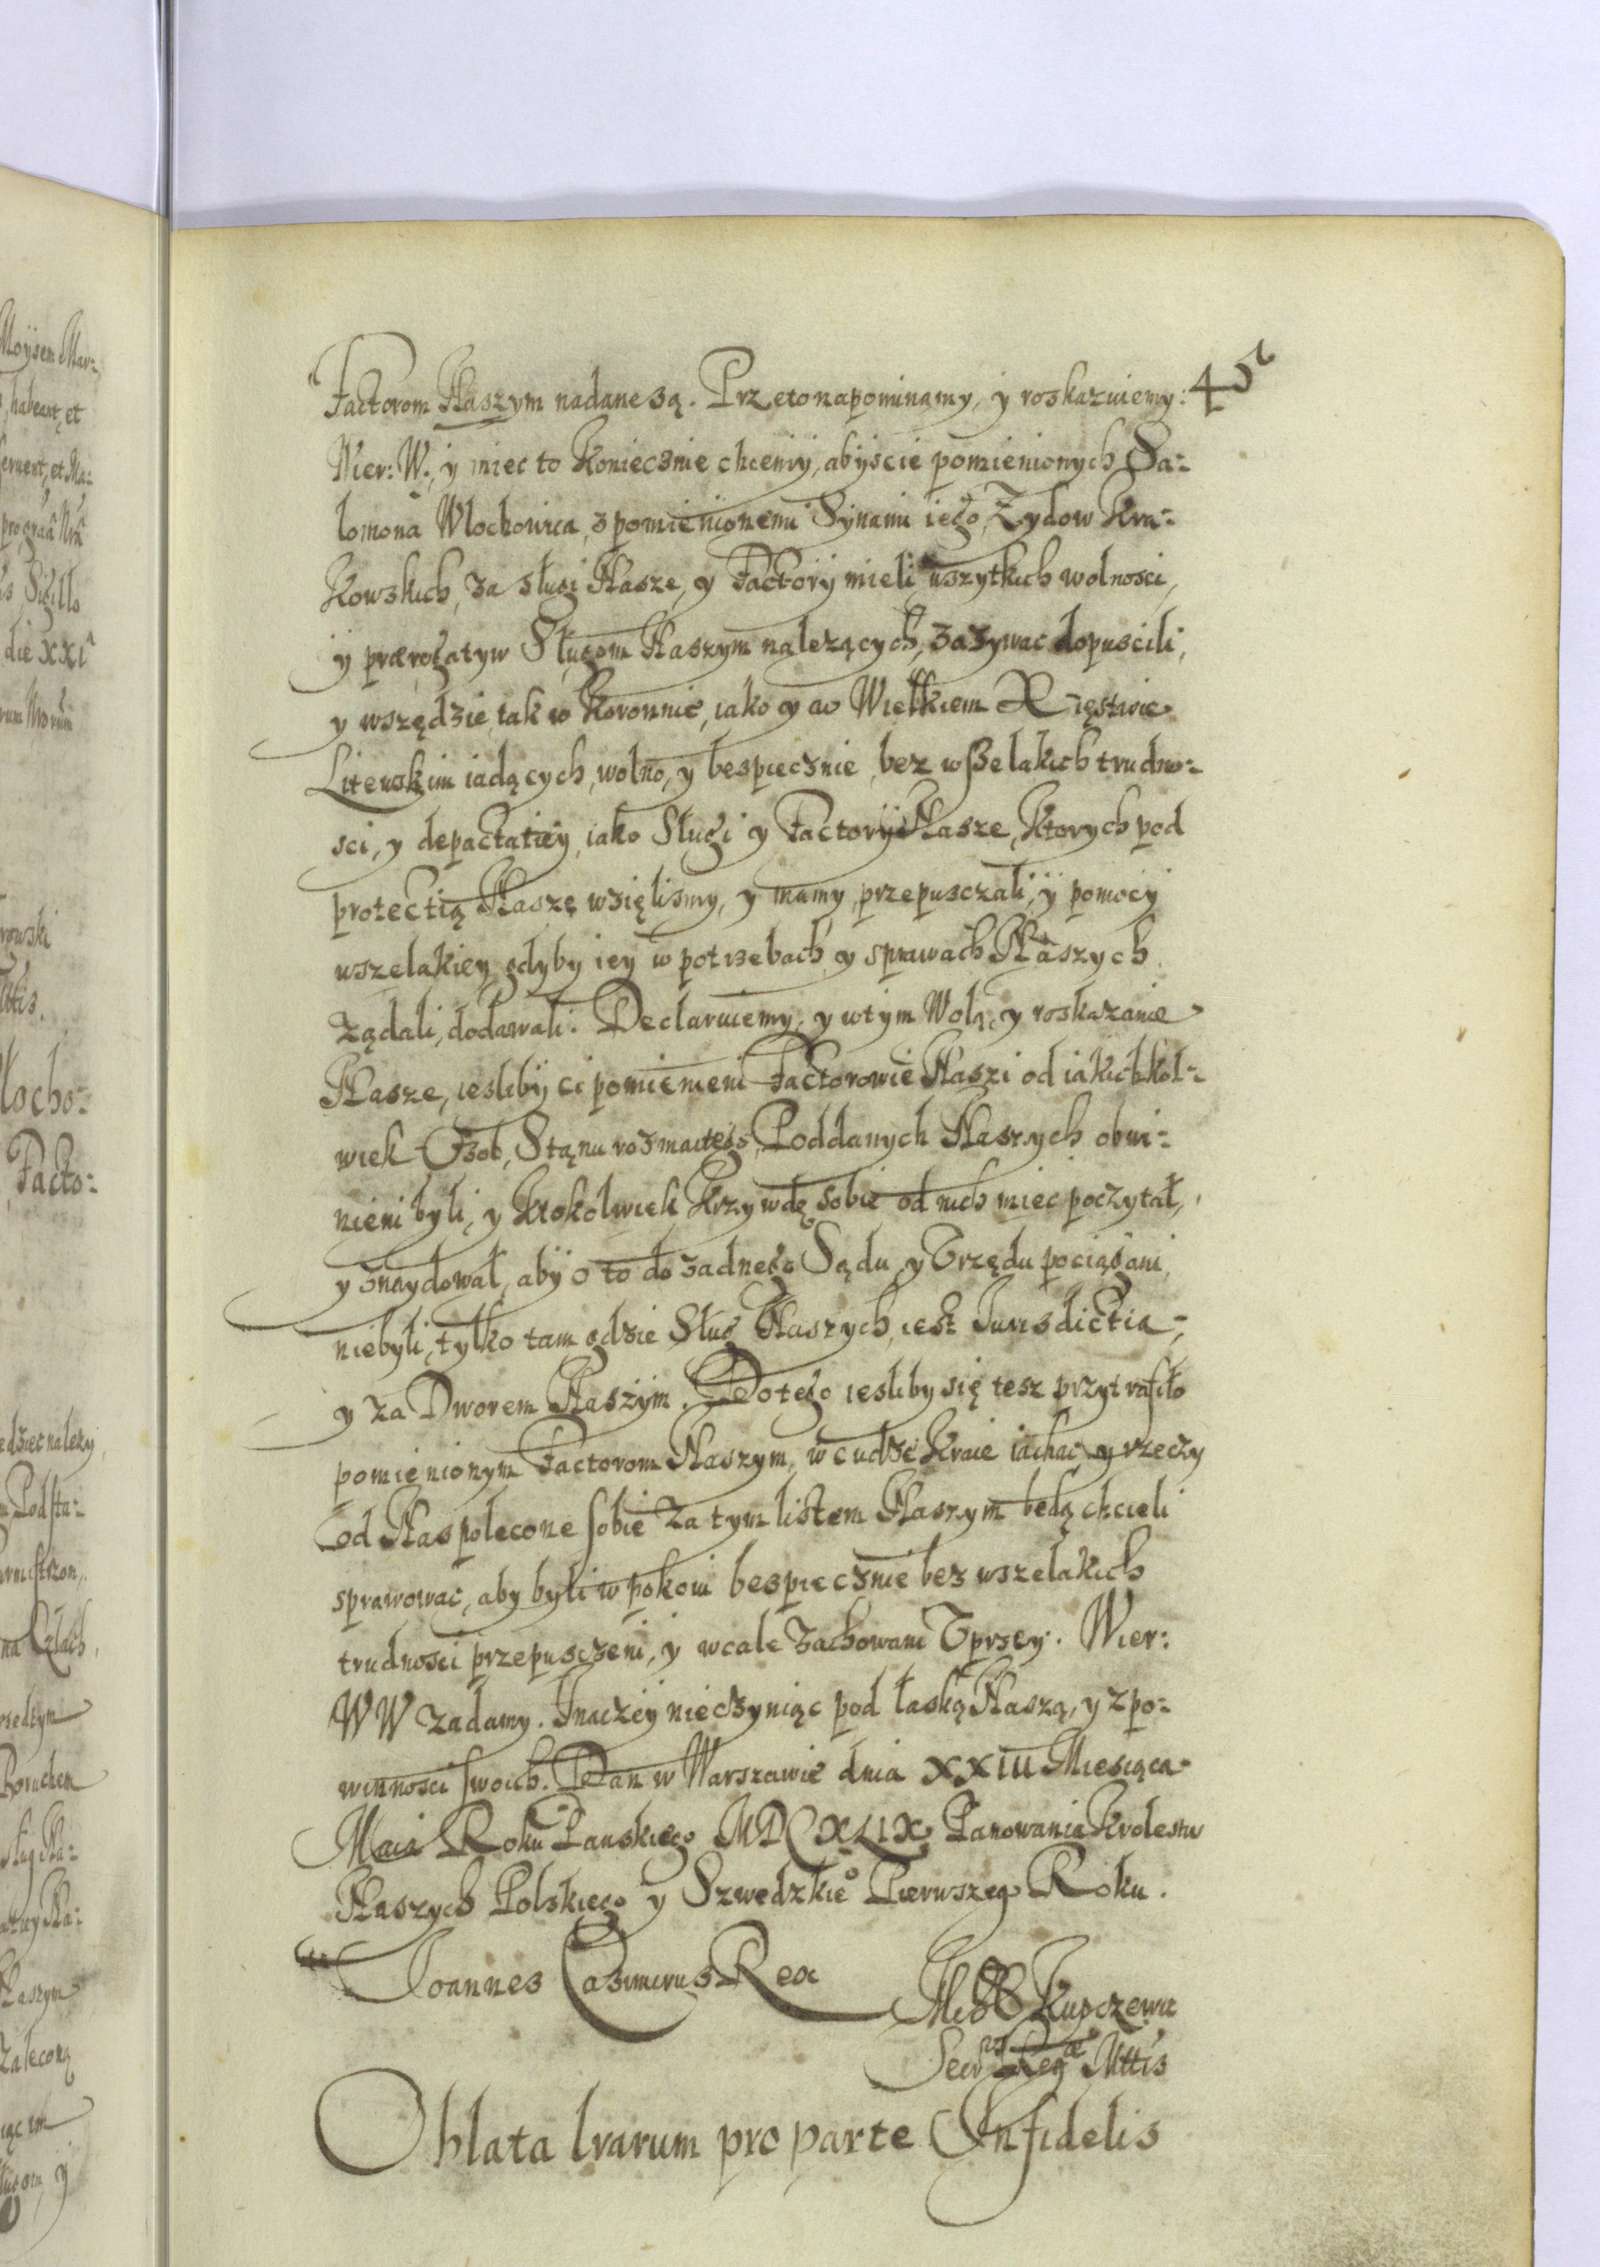 45
Factorom Naszym nadane są. Przeto napominamy, y roskazuiemy:
Wier: W:, y miec to koniecznie chcemy, abyscie pomienionych Sa-
lomona Wlochowica, z pomienionemi Synami iego, Zydow Kra-
kowskich, za sługi Nasze, y Factory mieli wszytkich wolnosci,
y prærogatyw Sługom Naszym nalezących, zazywac dopuscili,
y wszędzie tak w Koronnie, iako y w Wielkiem Xięstwie
Litewskim iadących, wolno, y bespiecznie, bez wszelakich trudno-
sci, y depactatiey, iako Sługi y Factory Nasze, ktorych pod
protectią Naszę wzięlismy, y mamy, przepusczali, y pomocy
wszelakiey, gdyby iey w potrzebach y sprawach Naszych
ządali, dodawali. Declaruiemy, y w tym Wolą, y roskazanie
Nasze, iesliby ci pomienieni Factorowie Naszi od iakichkol-
wiek Osob, Stanu rozmaitego, Poddanych Naszych obwi-
nieni byli, y ktokolwiek krzywdę sobie od nich miec poczytał,
y znaydował, aby o to do zadnego Sądu y Urzędu pociągani
niebyli, tylko tam gdzie Sług Naszych, iest Jurisdictia,
y za Dworem Naszym. Do tego iesliby się tesz przytrafiło
pomienionym Factorom Naszym, w cudze kraie iachac y rzeczy
od Nas polecone sobie za tym listem Naszym będą chcieli
sprawowac, aby byli w pokoiu bespiecznie bez wszelakich
trudnosci przepusczeni, y wcale zachowani Uprzey. Wier:
WW ządamy. Inaczey nieczyniąc pod łaską Naszą, y z po-
winnosci swoich. Dan w Warszawie dnia XXIII Miesiąca
Maia Roku Panskiego MDCXLIX Panowania Krolestw
Naszych Polskiego y Szwedzkie° Pierwszego Roku.
Ioannes Casimirus Rex
Secr Reg Mttis
Oblata lrarum pro parte Infidelis